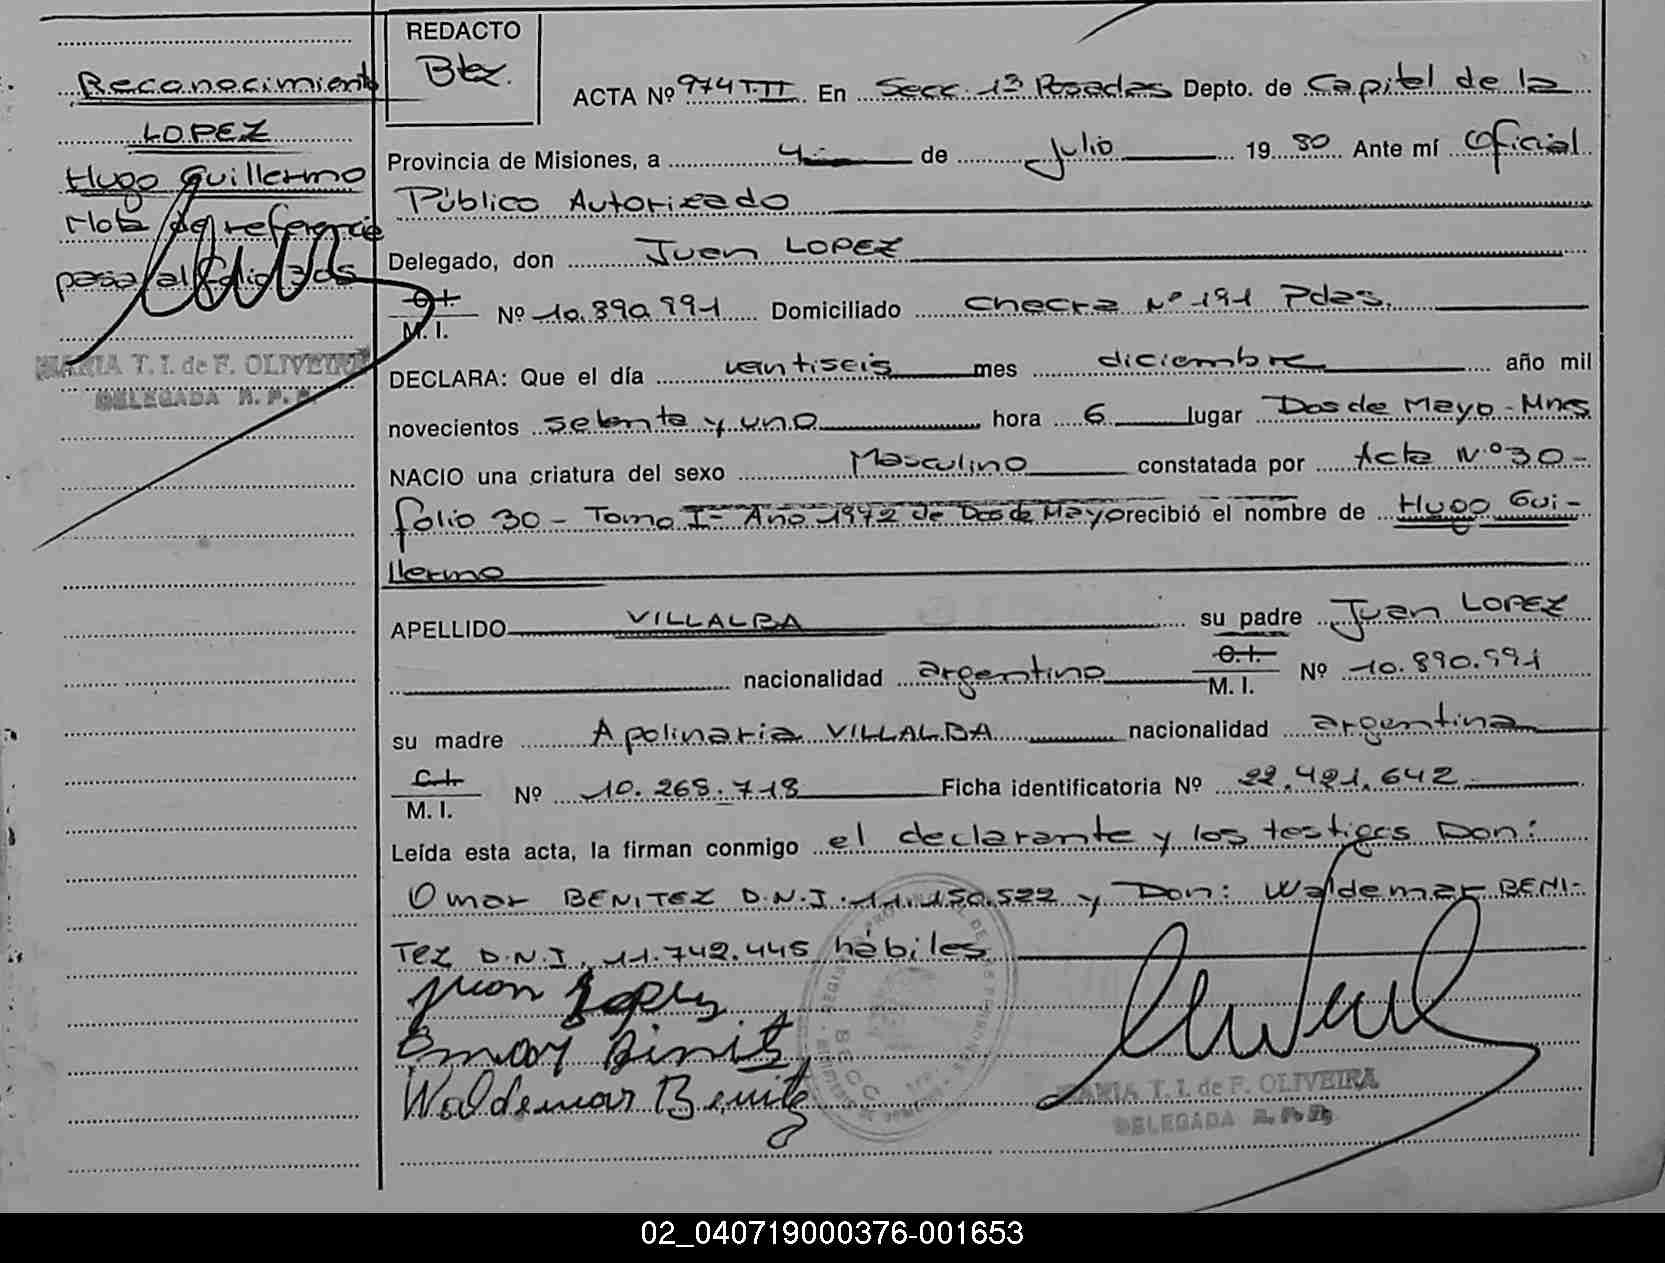 Reconocimiento
LOPEZ
Hugo Guillermo
Nota de referencia
pasa al folio
MARIA T. I. de F. OLIVEIRA
DELEGADA R. P. P.
REDACTO
Btz.
ACTA Nº 974 T.II. En Secc. 1ª Posadas Depto. de Capital de la
Provincia de Misiones, a 4 de Julio 19 80 Ante mí Oficial
Público Autorizado
Delegado, don Juan LOPEZ
C.I. M. I. Nº 10.890.991 Domiciliado Chacra Nº 191 Pdas.
DECLARA: Que el día veintiseis mes diciembre año mil
novecientos setenta y uno hora 6 lugar Dos de Mayo - Mnes
NACIO una criatura del sexo Masculino constatada por Acta Nº 30 -
folio 30 - Tomo I - Año 1972 de Dos de Mayo recibió el nombre de Hugo Gui-
llermo
APELLIDO VILLALBA su padre Juan LOPEZ
nacionalidad argentino C.I. M. I. Nº 10.890.991
su madre Apolinaria VILLALBA nacionalidad argentina
C.I. M. I. Nº 10.268.718 Ficha identificatoria Nº 22.421.642
Leída esta acta, la firman conmigo el declarante y los testigos Don:
Omar BENITEZ D.N.I. 11.150.522 y Don: Waldemar BENI-
TEZ D.N.I. 11.742.445 hábiles
Juan Lopez
Omar Binitz
Waldemar Benitz
MARIA T. I. de F. OLIVEIRA
DELEGADA R. P. P.
02_040719000376-001653